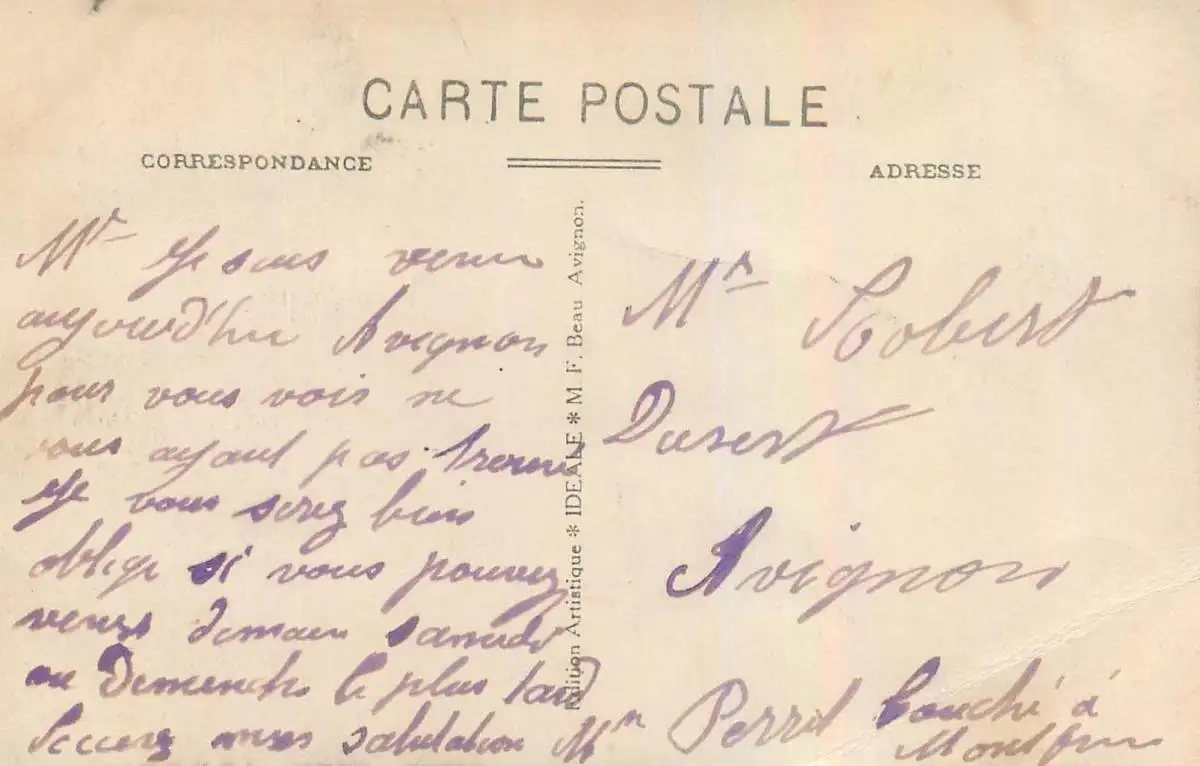 CARTE POSTALE
CORRESPONDANCE
ADRESSE
Mr Je suis venu
aujourd'hui Avignon
pour vous vois ne
vous ayant pas trouve
Je vous serez bien
oblige si vous pouvez
venez demain samedi
ou Demenche le plus tard
mes salutation Mr Perret Bouché à
Édition Artistique * IDEALE * M. F. Beau Avignon.
Mr Robert
Avignon